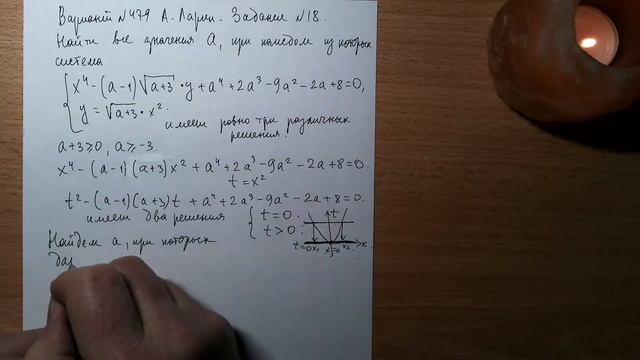 Вариант №479 А. Ларин. Задание №18.
Найти все значения a, при каждом из которых
система
{ x⁴ - (a-1)√(a+3) · y + a⁴ + 2a³ - 9a² - 2a + 8 = 0,
y = √(a+3) · x².
имеет ровно три различных
решения.
a+3 ≥ 0, a ≥ -3.
x⁴ - (a-1)(a+3)x² + a⁴ + 2a³ - 9a² - 2a + 8 = 0.
t = x²
t² - (a-1)(a+3)t + a⁴ + 2a³ - 9a² - 2a + 8 = 0.
имеет два решения { t = 0.
t > 0.
t
t=0 x₁ x=0 x₂ x
Найдем a, при которых